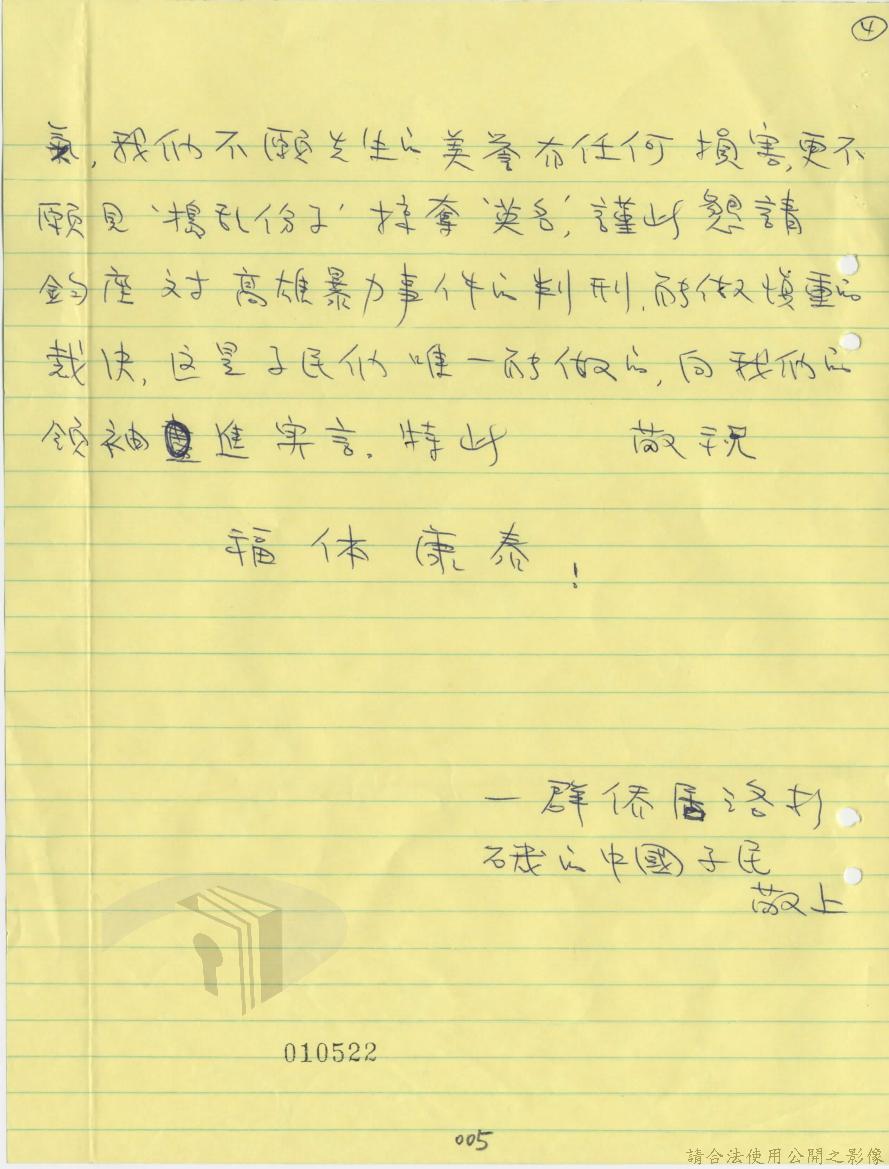 ④
氣,我们不願先生的美誉有任何損害,更不
願見‘搗乱份子’掠奪‘英名’,謹此懇請
鈞座对高雄暴力事件的判刑,能做慎重的
裁决,这是子民们唯一能做的,向我们的
領袖進実言。特此　　敬祝
福体康泰!
一群侨居洛杉
磯的中國子民
敬上
010522
005
請合法使用公開之影像